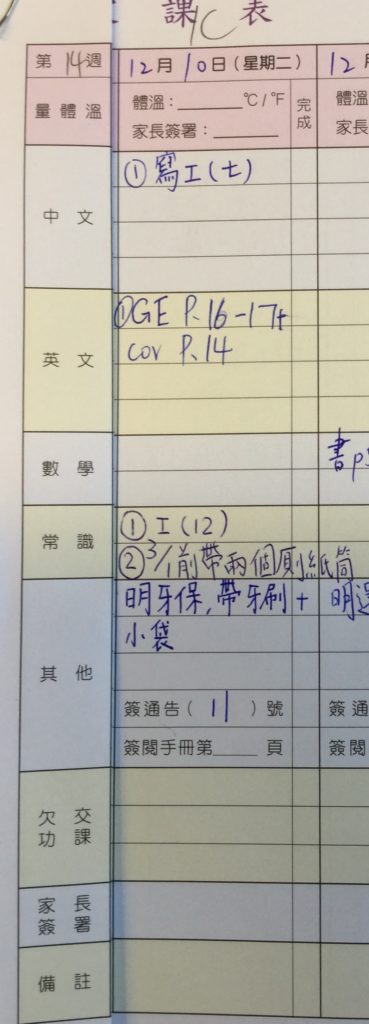 課 表
1C
第14週
12月10日(星期二)
12月
量體溫
體溫:______℃/℉
家長簽署:______
完成
體溫
家長
中文
① 寫工(七)
英文
①GE P.16-17+
cov P.14
數學
書p
常識
① 工(12)
② 3/1前帶兩個廁紙筒
其他
明牙保,帶牙刷+
小袋
明
簽通告(11)號
簽通
簽閱手冊第____頁
簽閱
欠交功課
家長簽署
備註